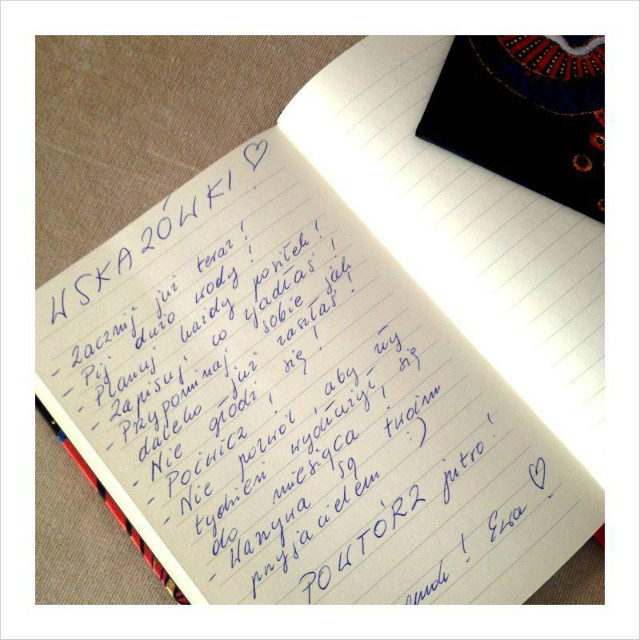 WSKAZÓWKI ♡
- Zacznij już teraz!
- Pij dużo wody!
- Planuj każdy posiłek!
- Zapisuj co zjadłaś!
- Przypominaj sobie jak
daleko już zaszłaś!
- Nie głodź się!
- Poćwicz!
- Nie pozwól, aby
tydzień wydłużył się
do miesiąca!
- Warzywa są twoim
przyjacielem :)
POWTÓRZ jutro!
! Ewa ♡